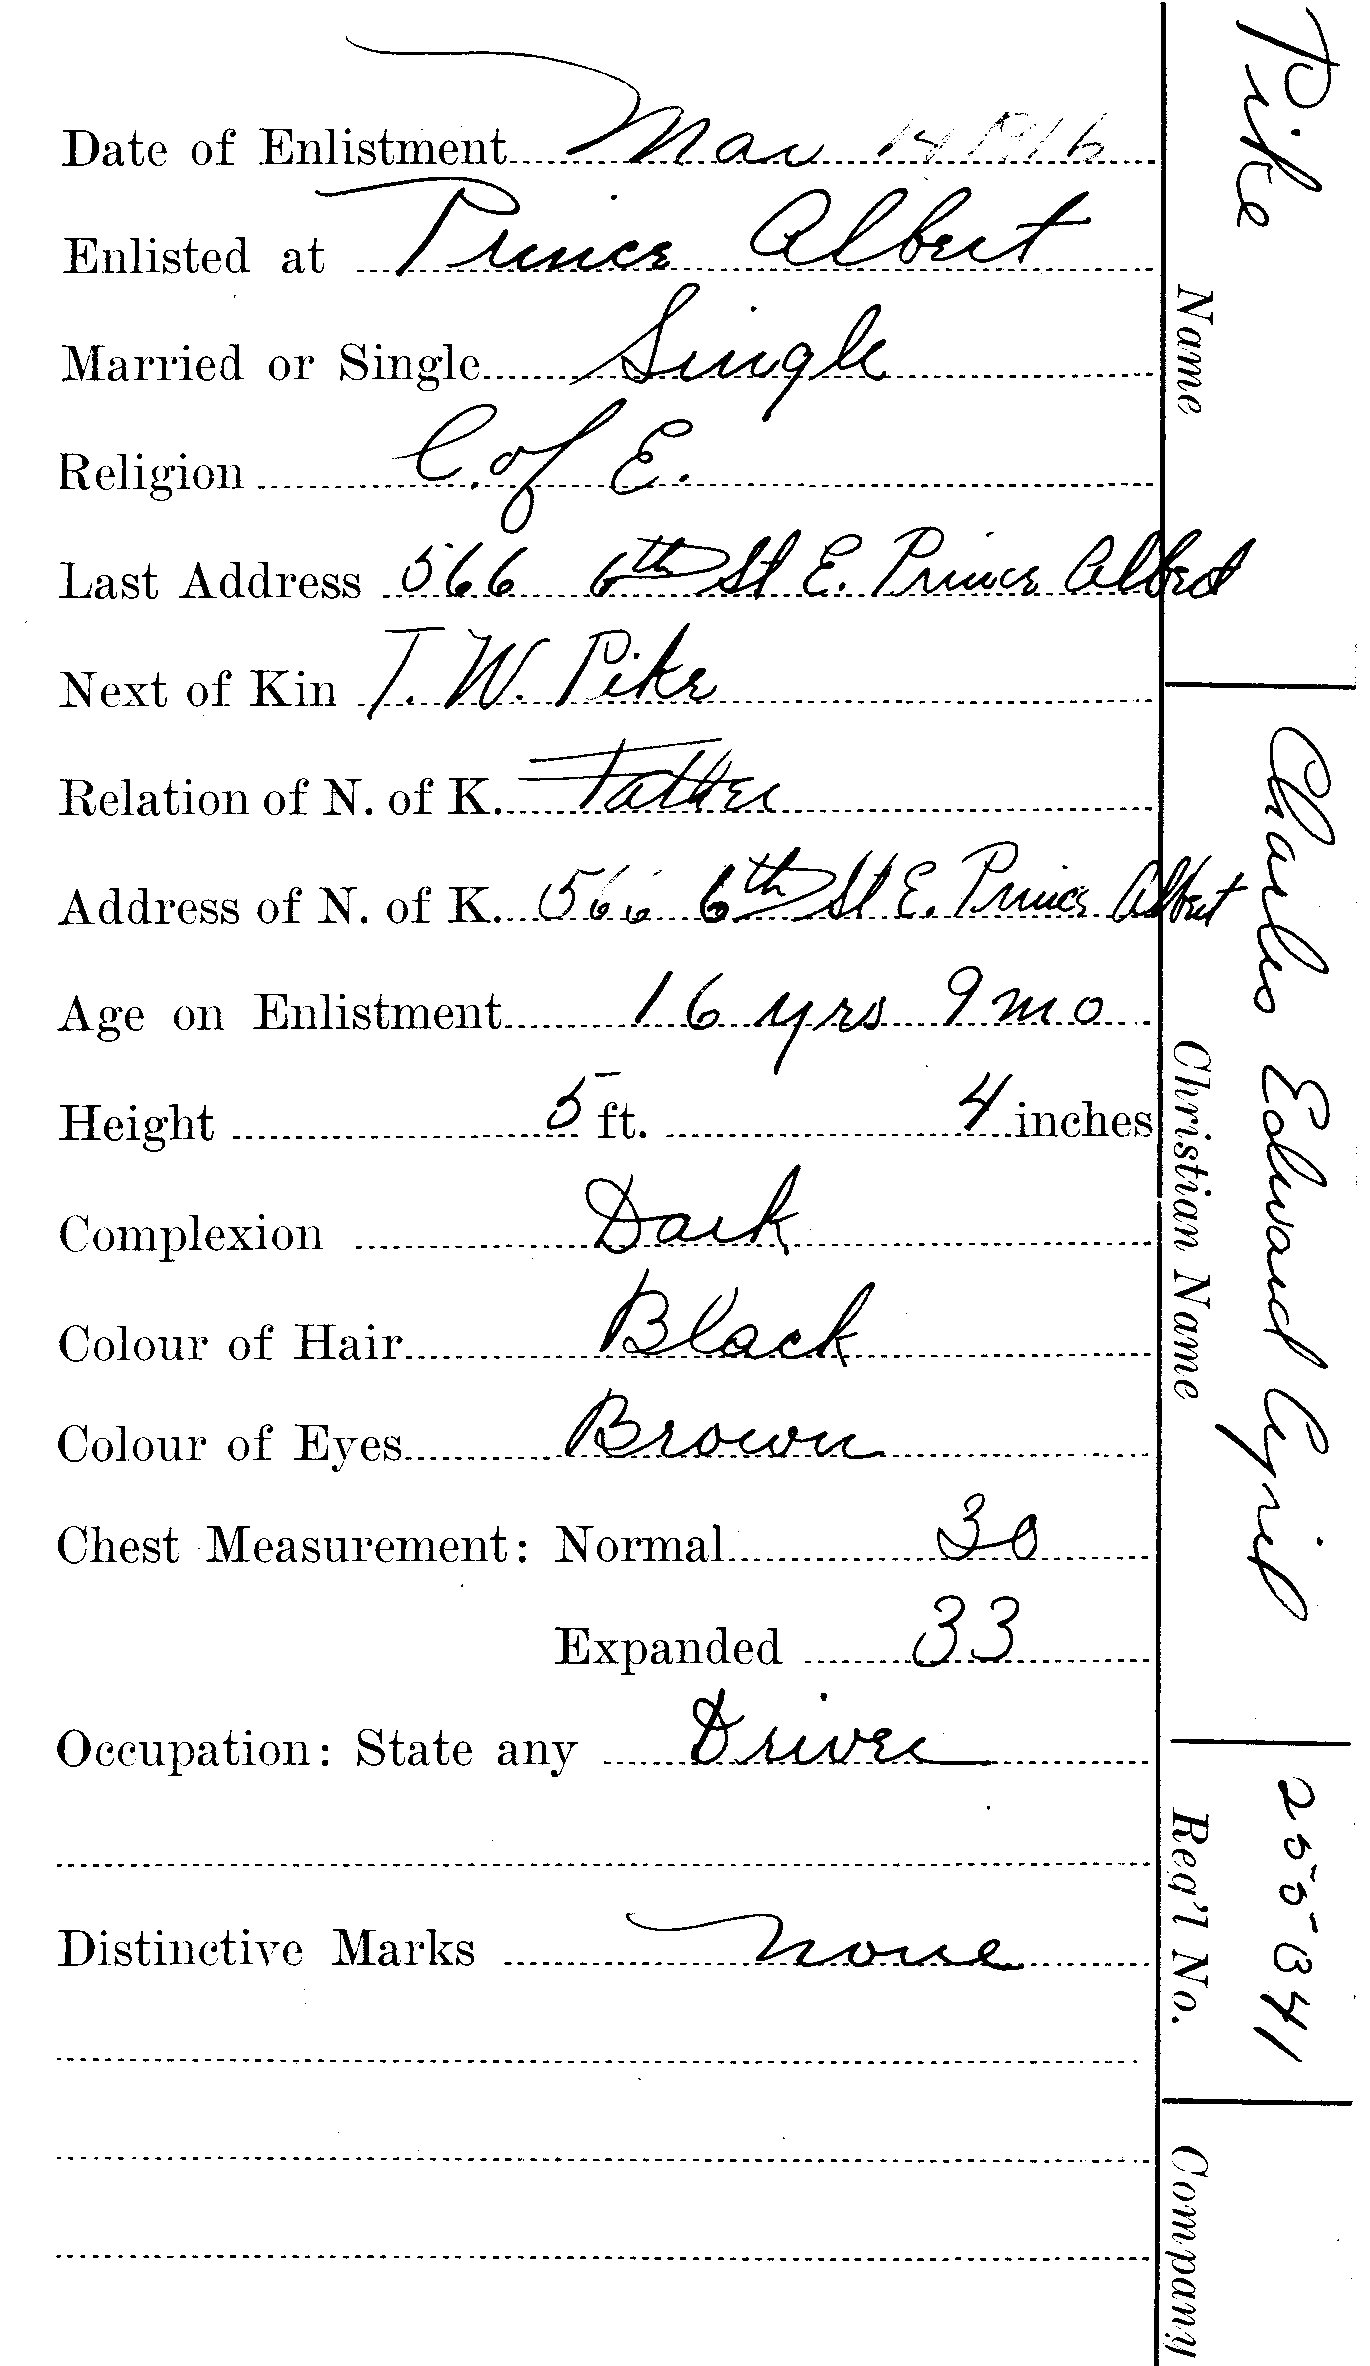 Date of Enlistment Mar 14 1916
Enlisted at Prince Albert
Married or Single Single
Religion C. of E.
Last Address 566 6th St E. Prince Albert
Next of Kin T. W. Pike
Relation of N. of K. Father
Address of N. of K. 566 6th St E. Prince Albert
Age on Enlistment 16 yrs 9 mo
Height 5 ft. 4 inches
Complexion Dark
Colour of Hair Black
Colour of Eyes Brown
Chest Measurement: Normal 30
Expanded 33
Occupation: State any Driver
Distinctive Marks None
Pike
Name
Charles Edward Cyril
Christian Name
255341
Reg'l No.
Company